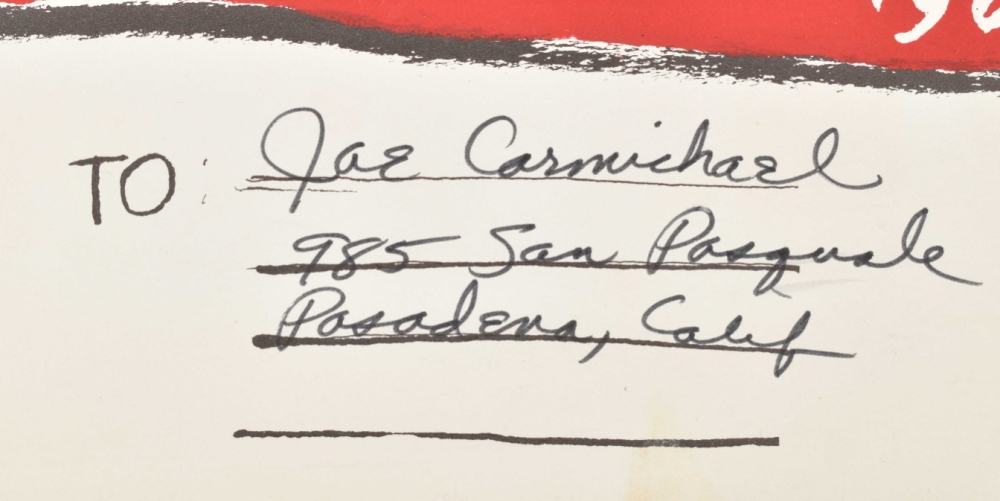 TO: Joe Carmichael
985 San Pasquale
Pasadena, Calif